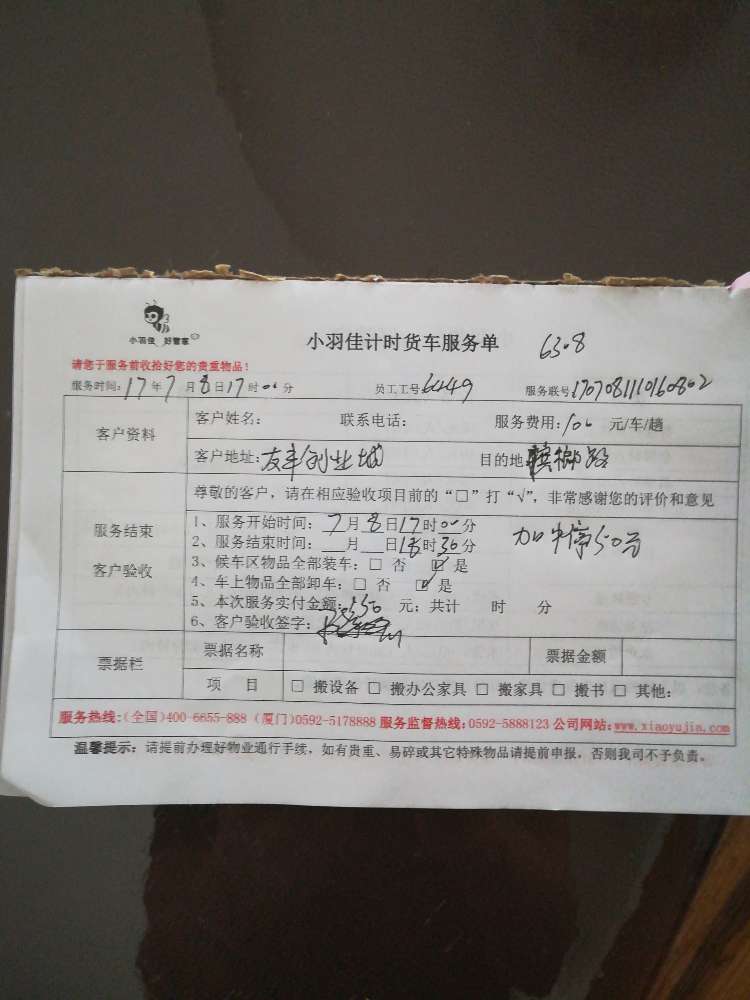 小羽佳 好管家
小羽佳计时货车服务单 6308
请您于服务前收拾好您的贵重物品！
服务时间：17年7月8日17时00分 员工工号6449 服务联号
客户资料
客户姓名： 联系电话： 服务费用：100 元/车/趟
客户地址：友丰创业城 目的地 路
服务结束
客户验收
尊敬的客户，请在相应验收项目前的“□”打“√”，非常感谢您的评价和意见
1、服务开始时间：7月8日17时00分
2、服务结束时间：__月__日18时30分
加 50元
3、候车区物品全部装车：□ 否 ☑ 是
4、车上物品全部卸车：□ 否 ☑ 是
5、本次服务实付金额：150 元；共计 时 分
6、客户验收签字：
票据栏
票据名称 票据金额
项 目 □ 搬设备 □ 搬办公家具 □ 搬家具 □ 搬书 □ 其他：
服务热线：(全国)400-6655-888 (厦门)0592-5178888 服务监督热线：0592-5888123 公司网站：www.xiaoyujia.com
温馨提示：请提前办理好物业通行手续，如有贵重、易碎或其它特殊物品请提前申报，否则我司不予负责。